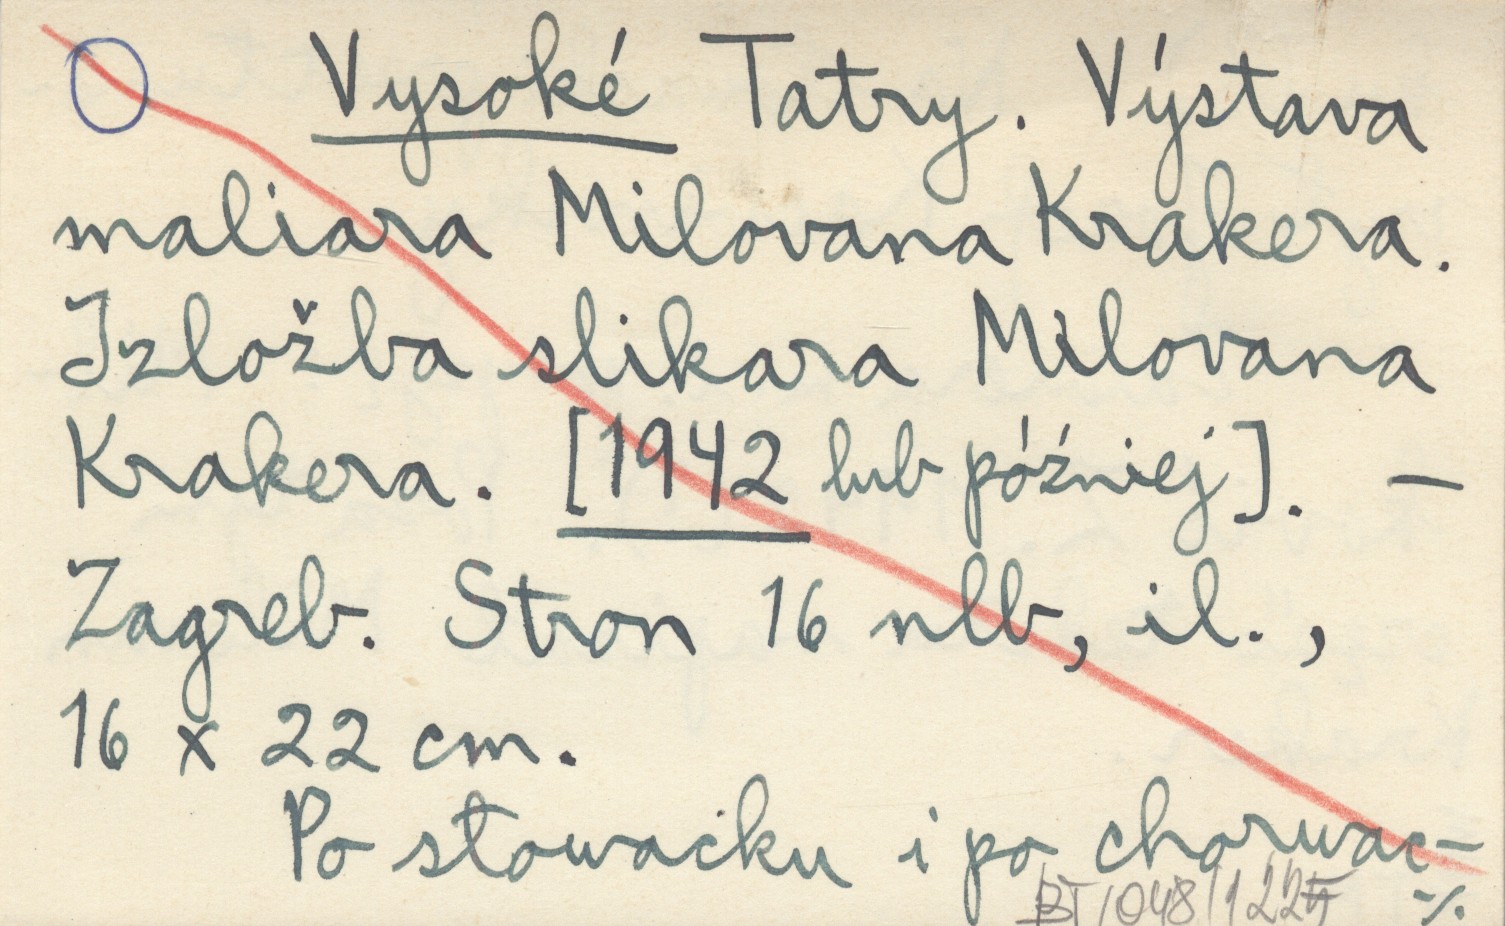 Vysoké Tatry. Výstava
maliara Milovana Krakera.
Izložba slikara Milovana
Krakera. [1942 lub później]. —
Zagreb. Stron 16 nlb, il.,
16 x 22 cm.
Po słowacku i po chorwac-
BT/048/1